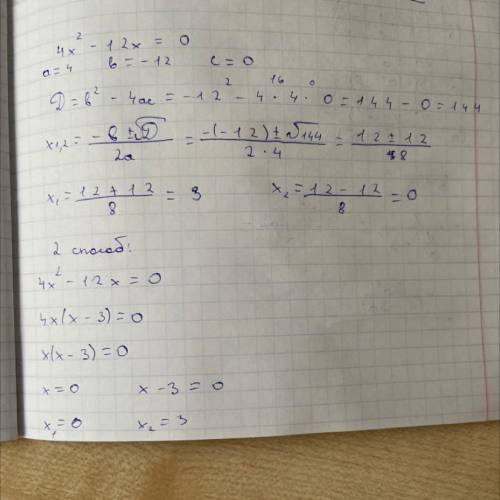 4x² - 12x = 0
a = 4 в = -12 c = 0
D = в² - 4ac = -12² - 4 · 4 · 0 = 144 - 0 = 144
x₁,₂ = (-в ± √D)/2a = (-(-12) ± √144)/(2 · 4) = (12 ± 12)/8
x₁ = (12 + 12)/8 = 3 x₂ = (12 - 12)/8 = 0
2 способ:
4x² - 12x = 0
4x(x - 3) = 0
x(x - 3) = 0
x = 0 x - 3 = 0
x₁ = 0 x₂ = 3